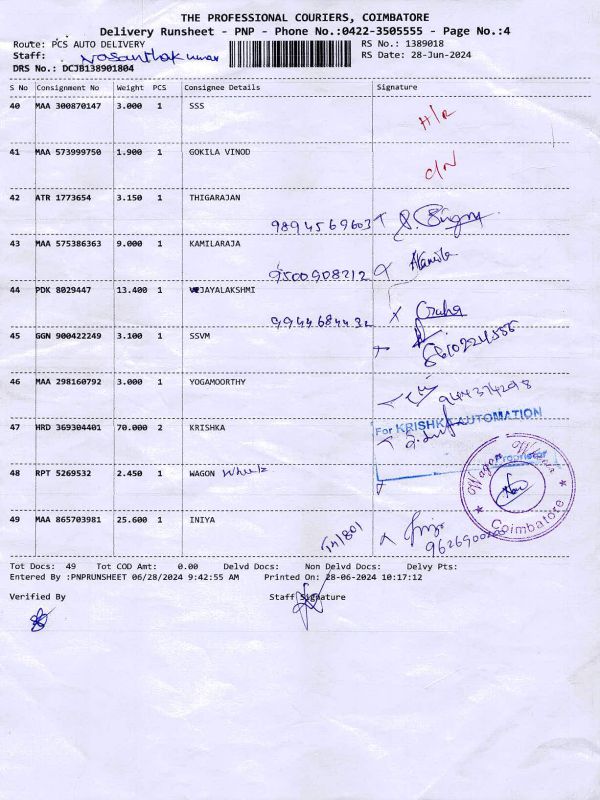 THE PROFESSIONAL COURIERS, COIMBATORE
Delivery Runsheet - PNP - Phone No.:0422-3505555 - Page No.:4
Route: PCS AUTO DELIVERY RS No.: 1389018
Staff: Vasanthakumar RS Date: 28-Jun-2024
DRS No.: DCJB138901804
S No Consignment No Weight PCS Consignee Details Signature
40 MAA 300870147 3.000 1 SSS H/R
41 MAA 573999750 1.900 1 GOKILA VINOD C/N
42 ATR 1773654 3.150 1 THIGARAJAN
9894569603
43 MAA 575386363 9.000 1 KAMILARAJA
9500908212
44 PDK 8029447 13.400 1 VEJAYALAKSHMI
9944684432
45 GGN 900422249 3.100 1 SSVM
46 MAA 298160792 3.000 1 YOGAMOORTHY 944374298
47 HRD 369304401 70.000 2 KRISHKA For KRISHKA AUTOMATION
Proprietor
48 RPT 5269532 2.450 1 WAGON Wheels Wagon Coimbatore
49 MAA 865703981 25.600 1 INIYA
Tot Docs: 49 Tot COD Amt: 0.00 Delvd Docs: Non Delvd Docs: Delvy Pts:
Entered By :PNPRUNSHEET 06/28/2024 9:42:55 AM Printed On: 28-06-2024 10:17:12
Verified By Staff Signature